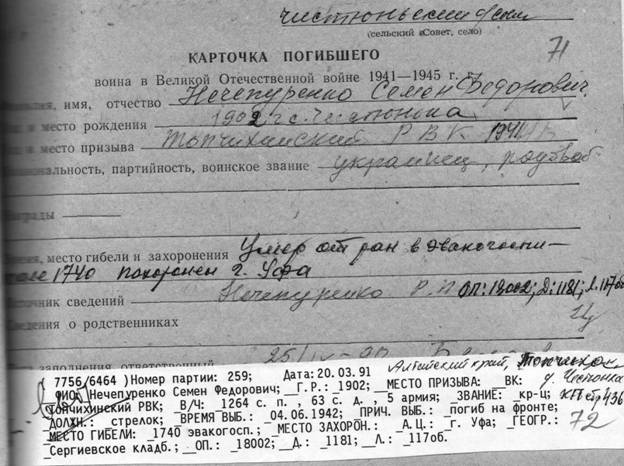 Чистюньский с/сов.
(сельский Совет, село)
71
КАРТОЧКА ПОГИБШЕГО
воина в Великой Отечественной войне 1941—1945 г. г.
имя, отчество Нечепуренко Семен Федорович
и место рождения 1902 г с. Чистюнька
и место призыва Топчихинский РВК 1941
национальность, партийность, воинское звание украинец,
Награды
место гибели и захоронения Умер от ран в эвакогоспи-
тале 1740 похоронен г. Уфа
Источник сведений Нечепуренко Р. П оп: 18002; Д: 1181; Л. 117об
Сведения о родственниках
заполнения, ответственный 25/IV-90
Алтайский край, Топчихин.
( 7756/6464 )Номер партии: 259; Дата:20.03.91
ФИО_Нечепуренко Семен Федорович; _Г.Р.: _1902; __МЕСТО ПРИЗЫВА: __ВК: д. Чистюнка
Топчихинский РВК; _В/Ч: _1264 с. п. , 63 с. д. , 5 армия; _ЗВАНИЕ: кр-ц; КП стр 436
_ДОЛЖН.: стрелок; _ВРЕМЯ ВЫБ.: _04.06.1942; ПРИЧ. ВЫБ.: _погиб на фронте;
_МЕСТО ГИБЕЛИ: _1740 эвакогосп.; _МЕСТО ЗАХОРОН.: _А.Ц.: _г. Уфа; _ГЕОГР.: 72
_Сергиевское кладб.; __ОП.: _18002; __Д.: _1181; __Л.: _117об.